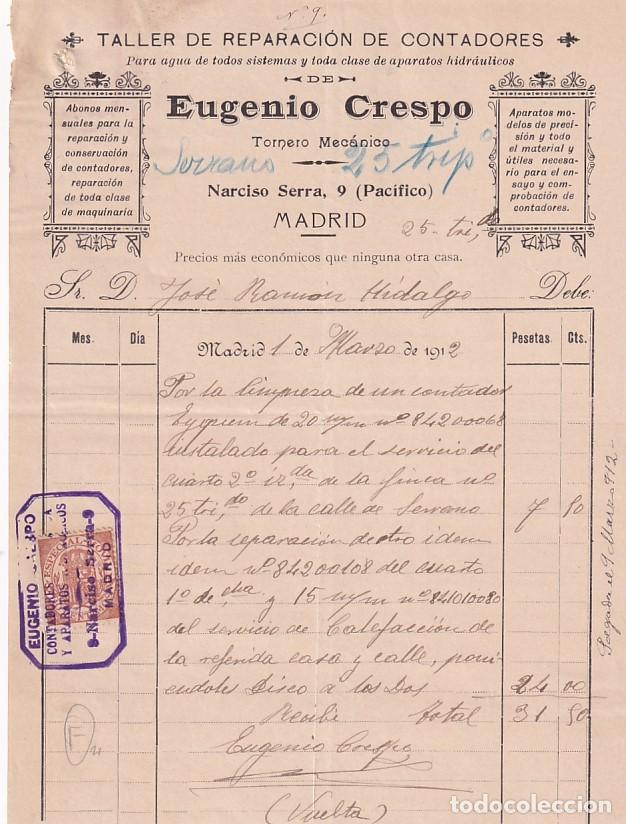 Nº 9.
TALLER DE REPARACIÓN DE CONTADORES
Para agua de todos sistemas y toda clase de aparatos hidráulicos
DE
Eugenio Crespo
Tornero Mecánico
Serrano 25 tripº
Narciso Serra, 9 (Pacífico)
MADRID
25 - tri,do
Precios más económicos que ninguna otra casa.
Abonos men-
suales para la
reparación y
conservación
de contadores,
reparación
de toda clase
de maquinaria
Aparatos mo-
delos de preci-
sión y todo
el material y
útiles necesa-
rio para el en-
sayo y com-
probación de
contadores.
Sr. D. José Ramón Hidalgo Debe:
Mes. Día Madrid 1 de Marzo de 1912 Pesetas Cts.
Por la limpieza de un contador
Eyquem de 20 m/m nº 84200068
instalado para el servicio del
cuarto 2º iz,da de la finca nº
25 tri,do de la calle de Serrano 7 50
Por la reparación de otro idem
idem nº 84200108 del cuarto
1º de,cha y 15 m/m nº 841010080
del servicio de Calefacción de
la referida casa y calle, poni-
endoles Disco a los Dos 24 00
Recibí total 31 50
Eugenio Crespo
(Vuelta)
EUGENIO CRESPO
CONTADORES
Y APARATOS
9-Narciso Serra-9
MADRID
9 Marzo 912-
todocoleccion